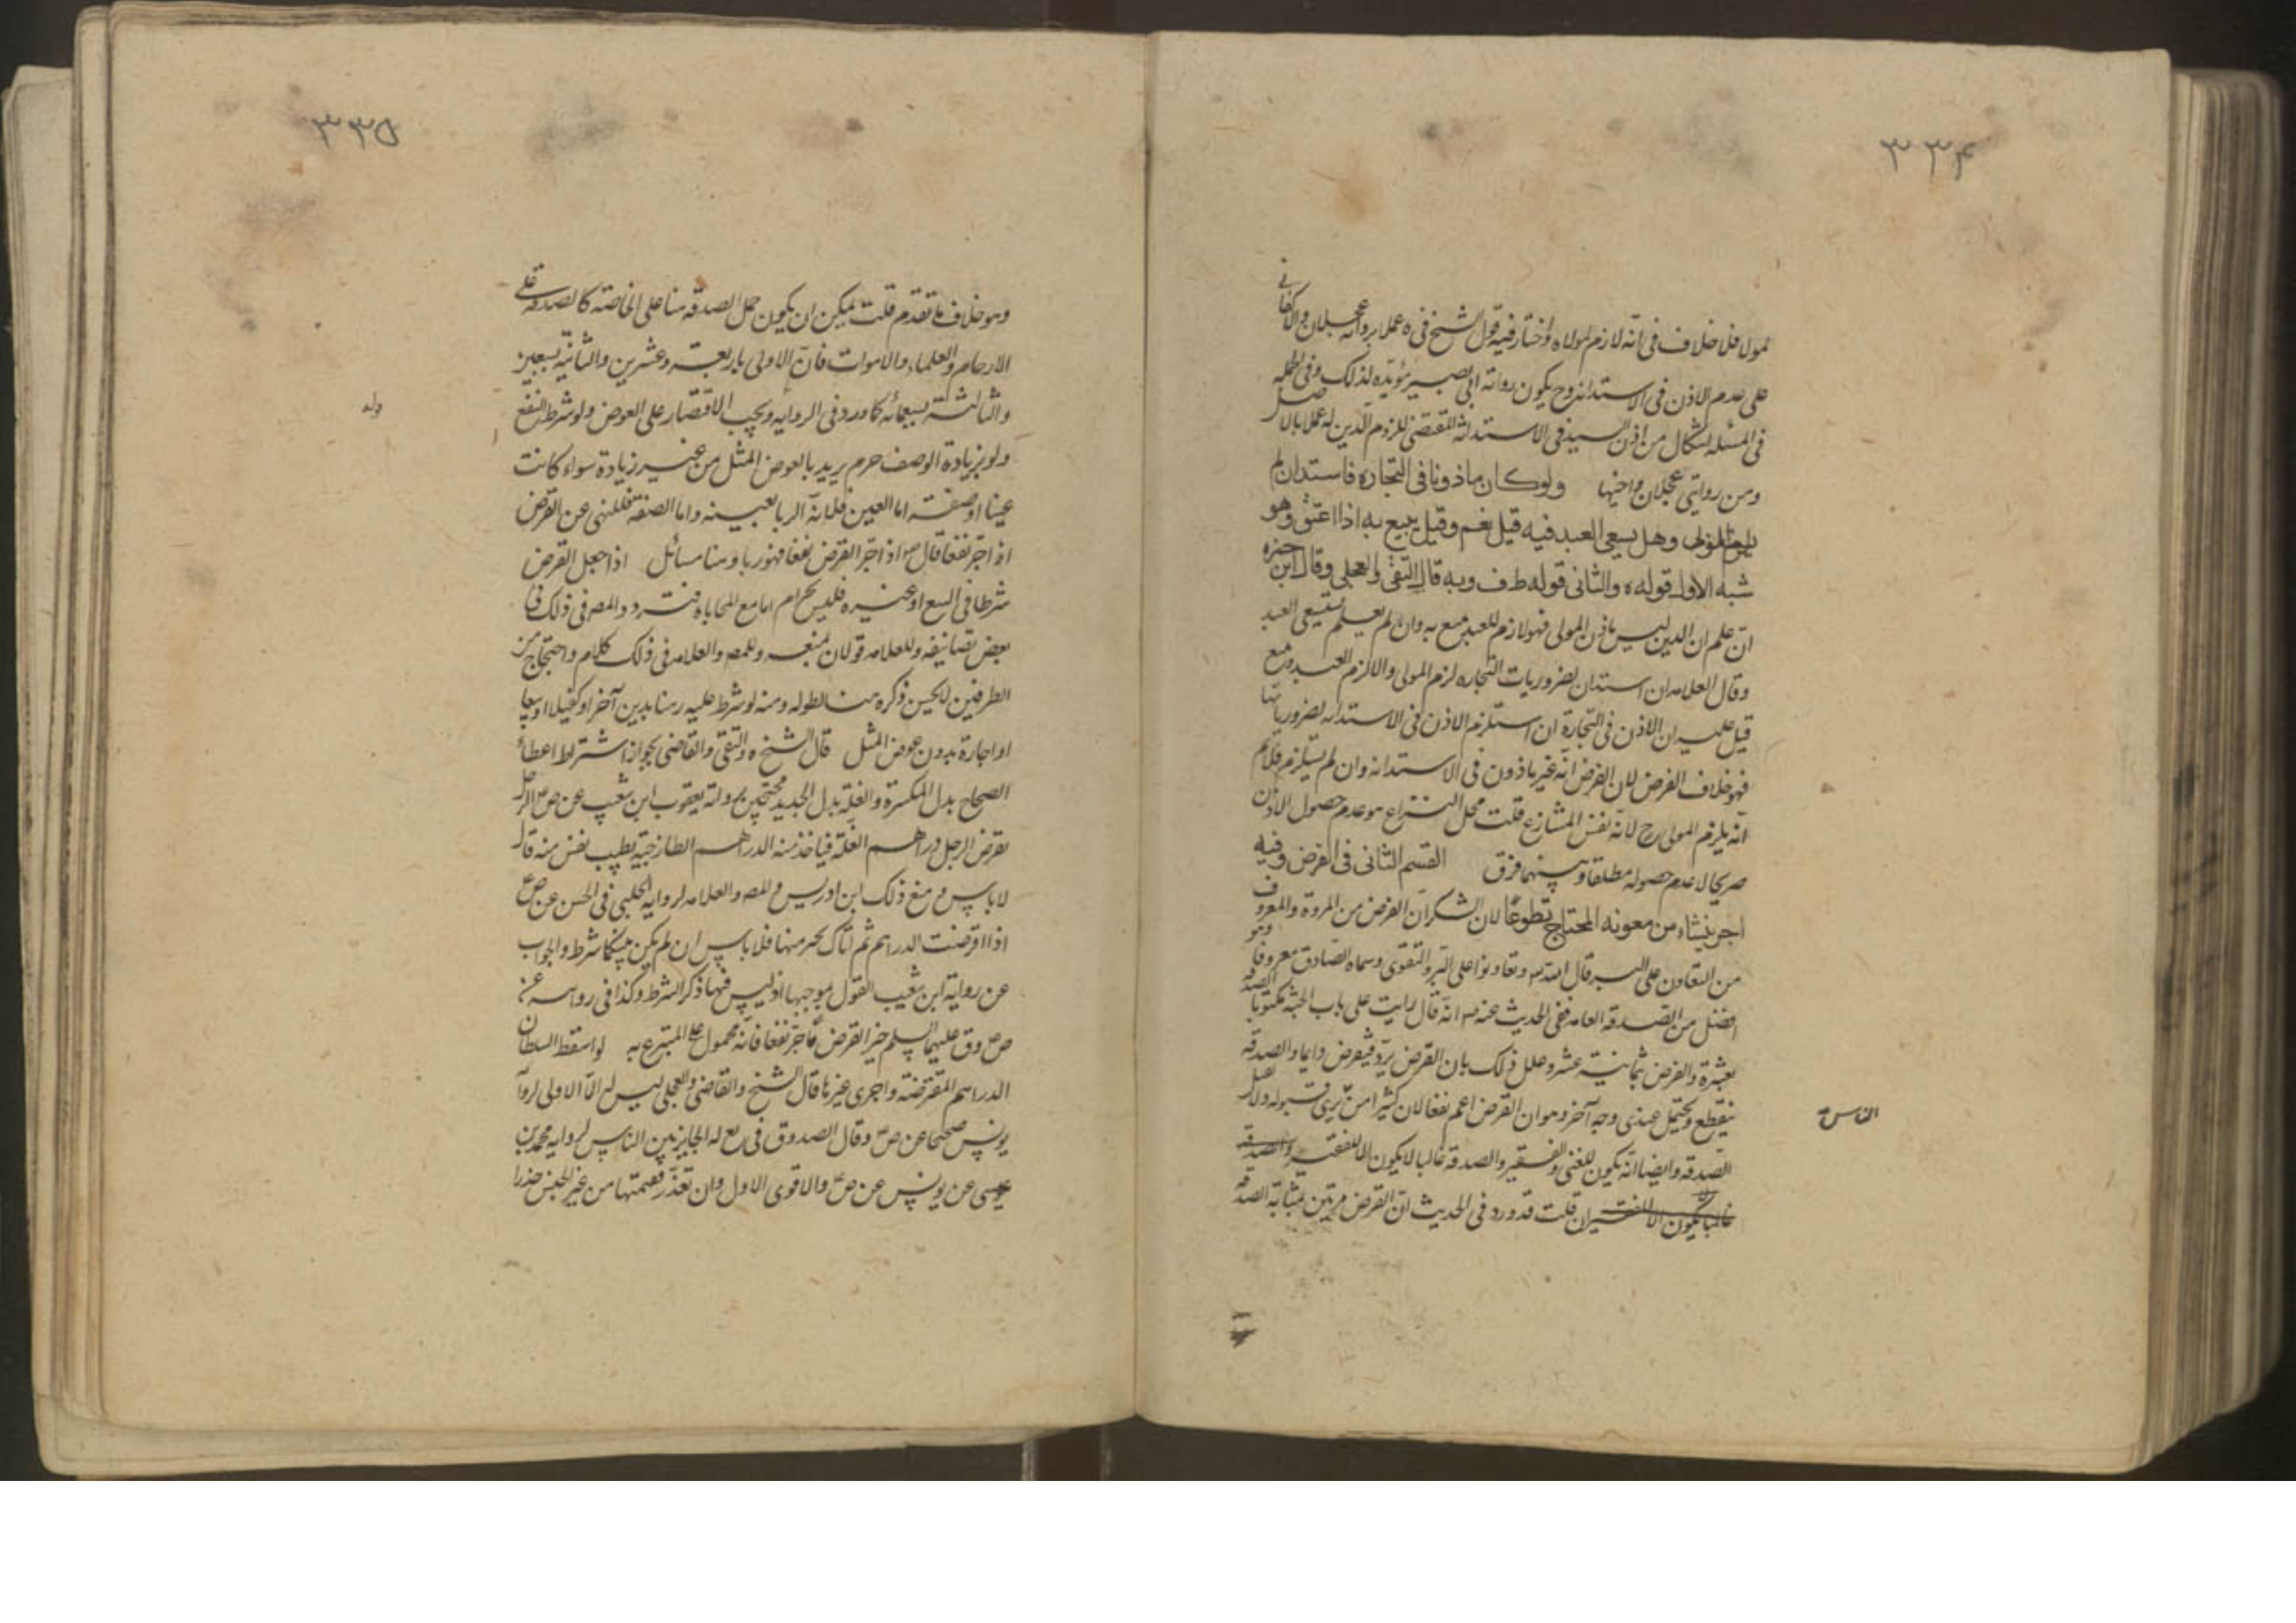 ٣٣۴
لمولاه فلا خلاف فى انه لازم لمولاه واختار فيه قول الشيخ فى ه عملا برواية عجلان والاكفانى
على عدم الاذن فى الاستدانة وح يكون رواية ابى بصير مؤيده لذلك وفى
فى المسئله اشكال من اذن السيد فى الاستدانة المقتضى للزوم الدين له عملا بالاصل
ومن روايتى عجلان واختها ولو كان ماذونا فى التجارة فاستدان لم
يلزم المولى وهل يسعى العبد فيه قيل نعم وقيل يتبع به اذا اعتق وهو
اشبه الاول قوله ه والثانى قوله ط ف وبه قال التقى والعجلى وقال ابن حمزه
ان علم ان الدين ليس باذن المولى فهو لازم للعبد يتبع به وان لم يعلم يستسعى العبد
وقال العلامه ان استدان لضروريات التجاره لزم المولى والا لزم العبد ويتبع
قيل عليه ان الاذن فى التجارة ان استلزم الاذن فى الاستدانه لضرورياتها
فهو خلاف الفرض لان الفرض انه غير ماذون فى الاستدانه وان لم يستلزم فلا ثم
انه يلزم المولى ح لانه نفس المتنازع قلت محل النزاع هو عدم حصول الاذن
صريحا لا عدم حصوله مطلقا وبينهما فرق القسم الثانى فى القرض وفيه
اجر ينشاء من معونه المحتاج تطوعا لان القرض من المروة والمعروف
وهو من التعاون على البر قال الله تع وتعاونوا على البر والتقوى وسماه الصادق معروفا
افضل من الصدقه العامه ففى الحديث عنه ص انه قال رايت على باب الجنة مكتوبا الصدقه
بعشرة والقرض بثمانية عشر وعلل ذلك بان القرض يرد فيقرض دايما والصدقه
ينقطع ويحتمل عندى وجه آخر وهو ان القرض اعم نفعا لان كثيرا من يرى قبوله ولا يقبل
الناس
الصدقه وايضا انه يكون للغنى والفقير والصدقة غالبا لا يكون الا للفقير والصدقه
غالبا لا يكون الا للفقير ان قلت قد ورد فى الحديث ان القرض مرتين بمثابة الصدقه
٣٣۵
وهو خلاف ما تقدم قلت يمكن ان يكون حمل الصدقه هنا على الخاصة كالصدقة على
الارحام والعلماء والاموات فان الاولى باربعة وعشرين والثانية بسبعين
والثالثة بسبعمائه كما ورد فى الروايه ويجب الاقتصار على العوض ولو شرط النفع
ولو بزيادة الوصف حرم يريد بالعوض المثل من غير زيادة سواء كانت
عينا او صفة اما العين فلانه الربا بعينه واما الصفة فللنهى عن القرض
اذا جر نفعا قال ص اذا جر القرض نفعا فهو ربا وهنا مسائل اذا جعل القرض
شرطا فى البيع او غيره فليس بحرام اما مع المحاباه فتردد المصر فى ذلك فى
بعض تصانيفه وللعلامه قولان بمنعه وللمص والعلامه فى ذلك كلام واحتجاج من
الطرفين لا يحسن ذكره هنا لطوله ومنه لو شرط عليه رهنا بدين آخر او كفيلا او بيعا
او اجارة بدون عوض المثل قال الشيخ ه والتقى والقاضى بجواز اشتراط اعطاء
الصحاح بدل المكسرة والغلة بدل الجديد محتجين برواية يعقوب ابن شعيب عن ص الرجل
يقرض الرجل دراهم الغلة فياخذ منه الدراهم الطازجية بطيب نفس منه قال
لا باس ومنع ذلك ابن ادريس والمص والعلامه لرواية الحلبى فى الحسن عن ص ع
اذا اقرضت الدراهم ثم اتاك بخير منها فلا باس ان لم يكن بينكما شرط والجواب
عن رواية ابن شعيب القول بموجبها اذ ليس فيها ذكر الشرط وكذا فى روايه عنه
ص وق عليهما السلم خير القرض ما جر نفعا فانه محمول على المتبرع به لو اسقط السلطان
الدراهم المقترضة واجرى غيرها قال الشيخ والقاضى والعجلى ليس له الا الاولى لرواية
يونس صحيحا عن ص وقال الصدوق فى يع له الجايز بين الناس لروايه محمد بن
عيسى عن يونس عن ص والاقوى الاول وان تعذر فقيمتها من غير الجنس حذرا